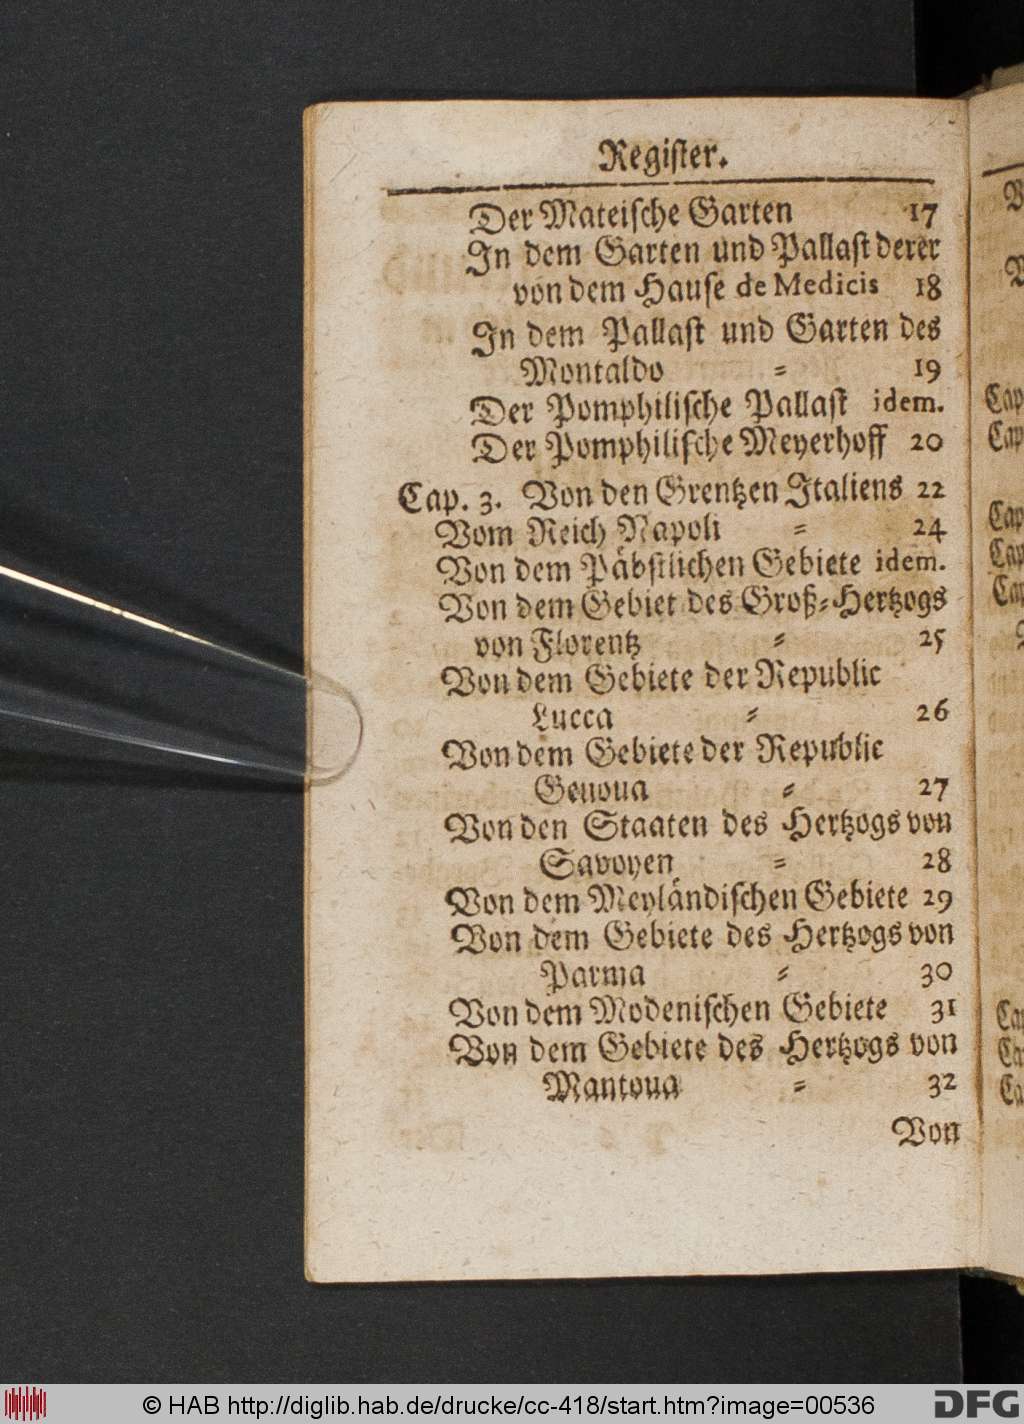 Register.
Der Mateische Garten 17
In dem Garten und Pallast derer
von dem Hause de Medicis 18
In dem Pallast und Garten des
Montaldo = 19
Der Pomphilische Pallast idem.
Der Pomphilische Meyerhoff 20
Cap. 3. Von den Grentzen Italiens 22
Vom Reich Napoli = 24
Von dem Päbstlichen Gebiete idem.
Von dem Gebiet des Groß=Hertzogs
von Florentz = 25
Von dem Gebiete der Republic
Lucca = 26
Von dem Gebiete der Republic
Genoua = 27
Von den Staaten des Hertzogs von
Savoyen = 28
Von dem Meyländischen Gebiete 29
Von dem Gebiete des Hertzogs von
Parma = 30
Von dem Modenischen Gebiete 31
Von dem Gebiete des Hertzogs von
Mantoua = 32
Von
Cap
Cap
Cap
Cap
Cap
Cap
Ca
Ca
© HAB http://diglib.hab.de/drucke/cc-418/start.htm?image=00536
DFG